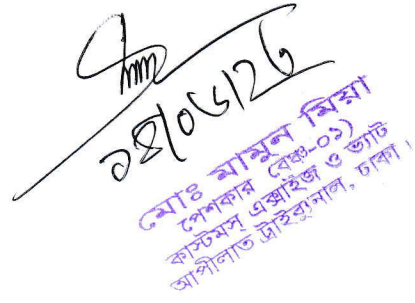 ১৪/০৬/২৬
মোঃ মামুন মিয়া
পেশকার (বেঞ্চ-০১)
কাস্টমস্ এক্সাইজ ও ভ্যাট
আপীলাত ট্রাইবুনাল, ঢাকা।